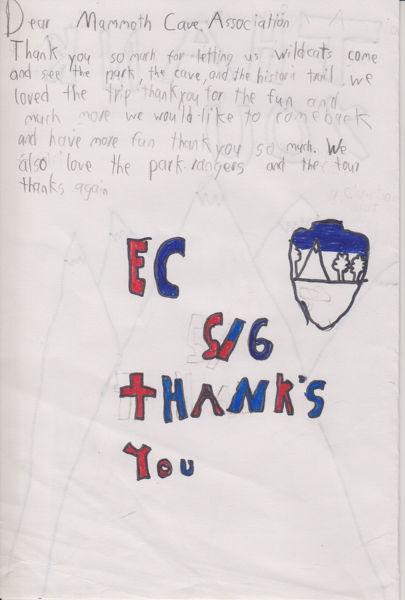 Dear Mammoth Cave Association
Thank you so much for letting us wildcats come
and see the park, the cave, and the historic trail. we
loved the trip thank you for the fun and
much more we would like to come back
and have more fun thank you so much. We
also love the park rangers and the tour
thanks again
EC
5/6
THANK'S
YOU